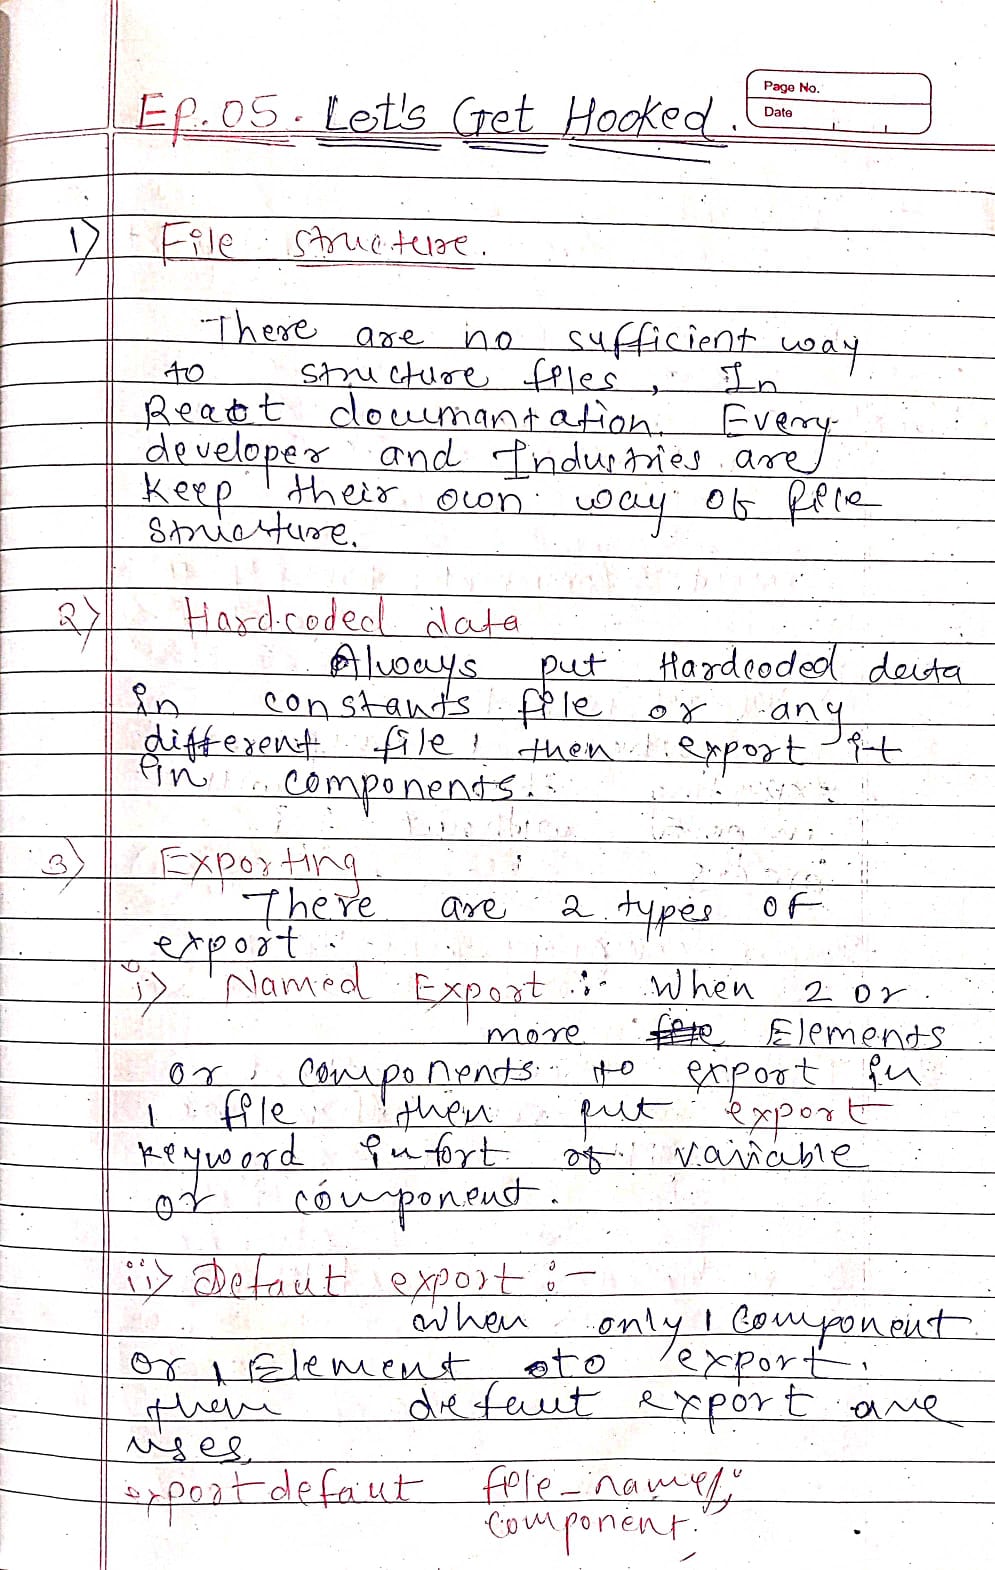 Page No.
Date
Ep. 05. Let's Get Hooked.
1) File structure.
There are no sufficient way
to structure files, In
React documantation. Every
developer and Industries are
keep their own way of file
structure.
2) Hardcoded data
Always put Hardcoded data
in constants file or any
different file, then export it
in components.
3) Exporting
There are 2 types of
export.
i) Named Export :- When 2 or
more Elements
or components to export in
1 file then put export
keyword infort of variable
or component.
ii) Defaut export :-
when only 1 Component
or 1 Element to export,
then defaut export are
uses.
export defaut file_name/
component.